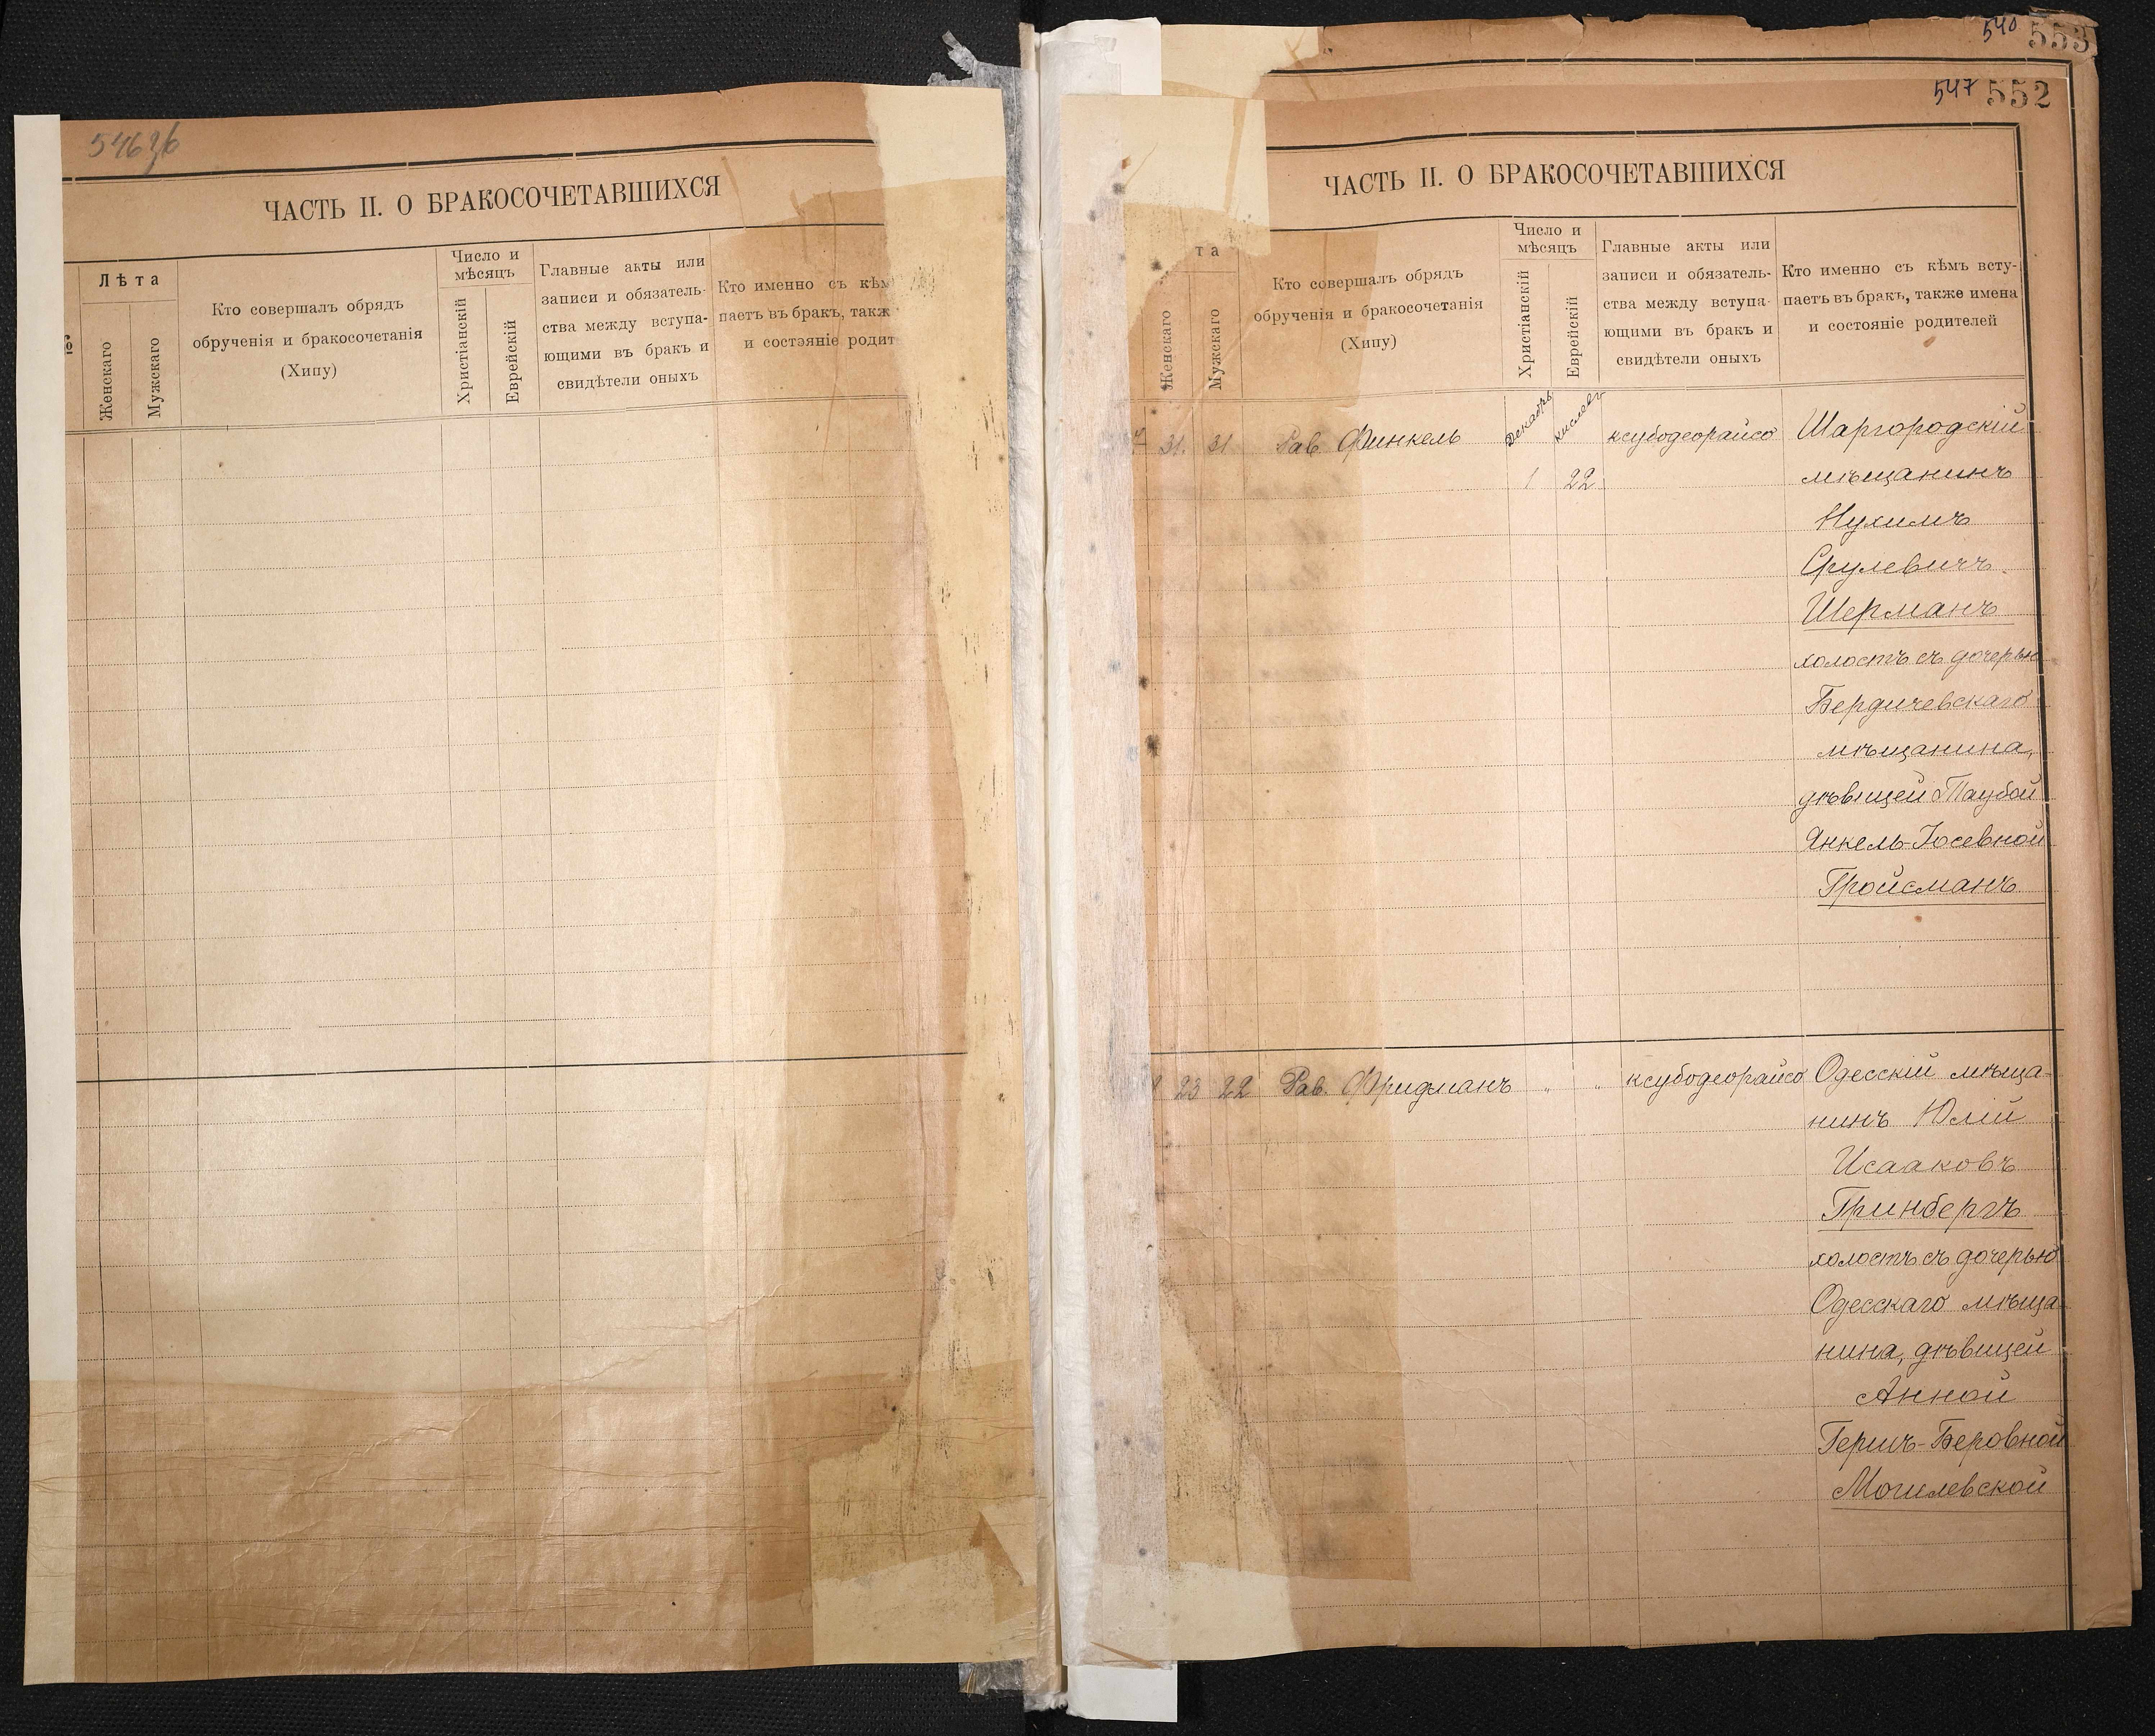 546зб
ЧАСТЬ II. О БРАКОСОЧЕТАВШИХСЯ
Лѣта
Женскаго
Мужскаго
Кто совершалъ обрядъ
обрученія и бракосочетанія
(Хипу)
Число и
мѣсяцъ
Христіанскій
Еврейскій
Главные акты или
записи и обязатель-
ства между вступа-
ющими въ бракъ и
свидѣтели оныхъ
Кто именно съ кѣм
паетъ въ бракъ, такж
и состояніе родит
540 553
547 552
ЧАСТЬ II. О БРАКОСОЧЕТАВШИХСЯ
та
Женскаго
Мужскаго
Кто совершалъ обрядъ
обрученія и бракосочетанія
(Хипу)
Число и
мѣсяцъ
Христіанскій
Еврейскій
Главные акты или
записи и обязатель-
ства между вступа-
ющими въ бракъ и
свидѣтели оныхъ
Кто именно съ кѣмъ всту-
паетъ въ бракъ, также имена
и состояніе родителей
31. 31 Рав. Финкель Декабрь Кислевъ ксубодеорайсо Шаргородскій
1 22 мѣщанинъ
Нухимъ
Срулевичъ
Шерманъ
холостъ съ дочерью
Бердичевскаго
мѣщанина,
дѣвицей Таубой
Янкель-Іосевной
Гройсманъ
23 22 Рав. Фридманъ " " ксубодеорайсо Одесскій мѣща-
нинъ Юлій
Исааковъ
Гринбергъ
холостъ съ дочерью
Одесскаго мѣща-
нина, дѣвицей
Анной
Гершъ-Беровной
Могилевской